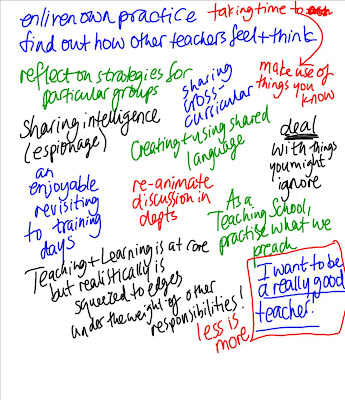 enliven own practice
taking time to
find out how other teachers feel + think
make use of
things you
know
reflect on strategies for
particular groups
sharing
cross-
curricular
Sharing intelligence
(espionage)
Creating + using shared
language
deal
with things
you might
ignore
an
enjoyable
revisiting
to training
days
re-animate
discussion in
depts
As a
Teaching School,
practise what we
preach
Teaching + Learning is at core
but realistically is
squeezed to edges
under the weight of other
responsibilities!
less is
more
I want to be
a really good
teacher.